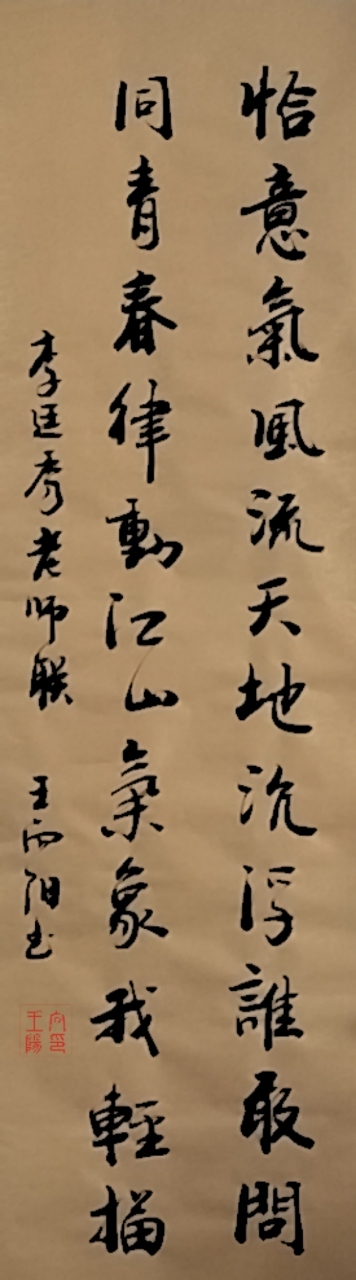 恰意氣風流天地沉浮誰敢問
同青春律動江山氣象我輕描
李廷秀老师联 王向阳书
王向陽印